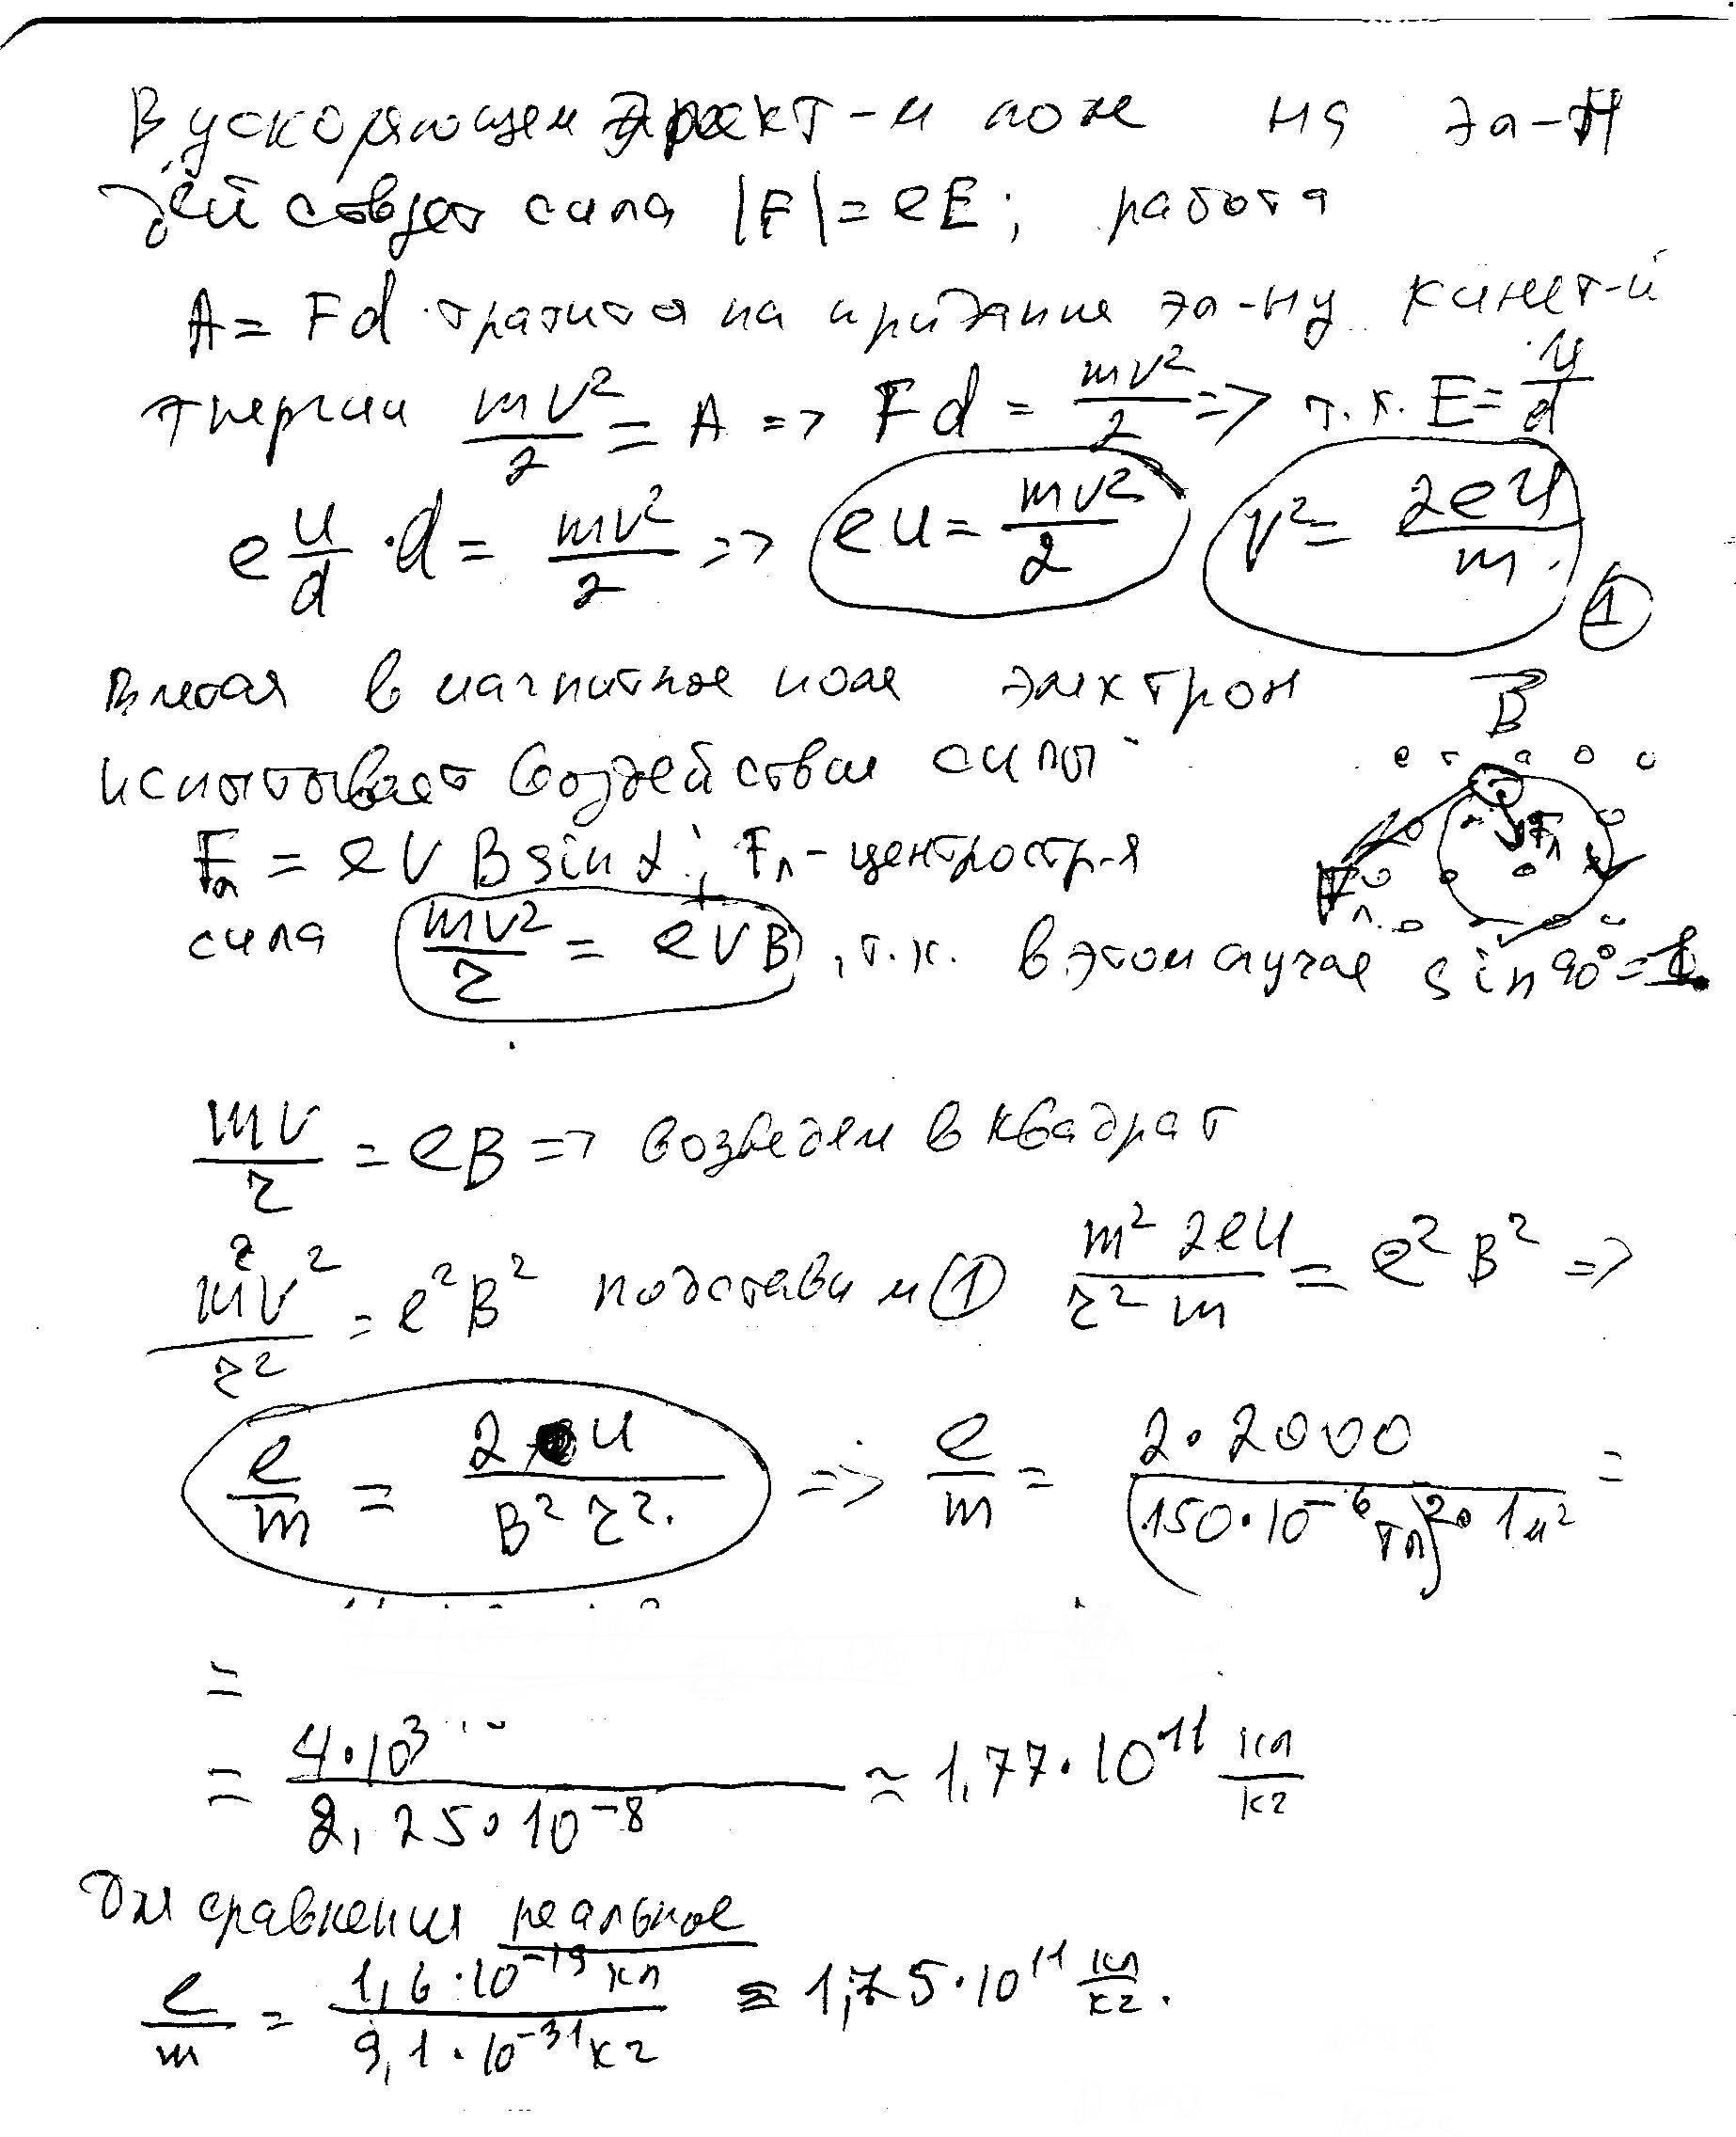 В ускоряющем элект-м поле на эл-н
действует сила |F| = eE; работа
A = Fd тратится на придание эл-ну кинет-й
энергии mv²/2 = A => Fd = mv²/2 => т.к. E = U/d
e U/d · d = mv²/2 => eU = mv²/2 v² = 2eU/m
1
влетая в магнитное поле электрон
B
испытывает воздействие силы
Fл = eVB sin α; Fл - центростр-я
Fл
Fл
сила mv²/r = eVB, т.к. в этом случае sin 90° = 1.
mv/r = eB => возведем в квадрат
m²v²/r² = e²B² подставим (1) m² 2eU/r² m = e²B² =>
e/m = 2U/B² r². => e/m = 2·2000/(150·10⁻⁶ Тл)²· 1м² =
=
= 4·10³/2,25·10⁻⁸ ≈ 1,77·10¹¹ Кл/кг
Для сравнения реальное
e/m = 1,6·10⁻¹⁹ Кл/9,1·10⁻³¹ кг ≈ 1,75·10¹¹ Кл/кг.